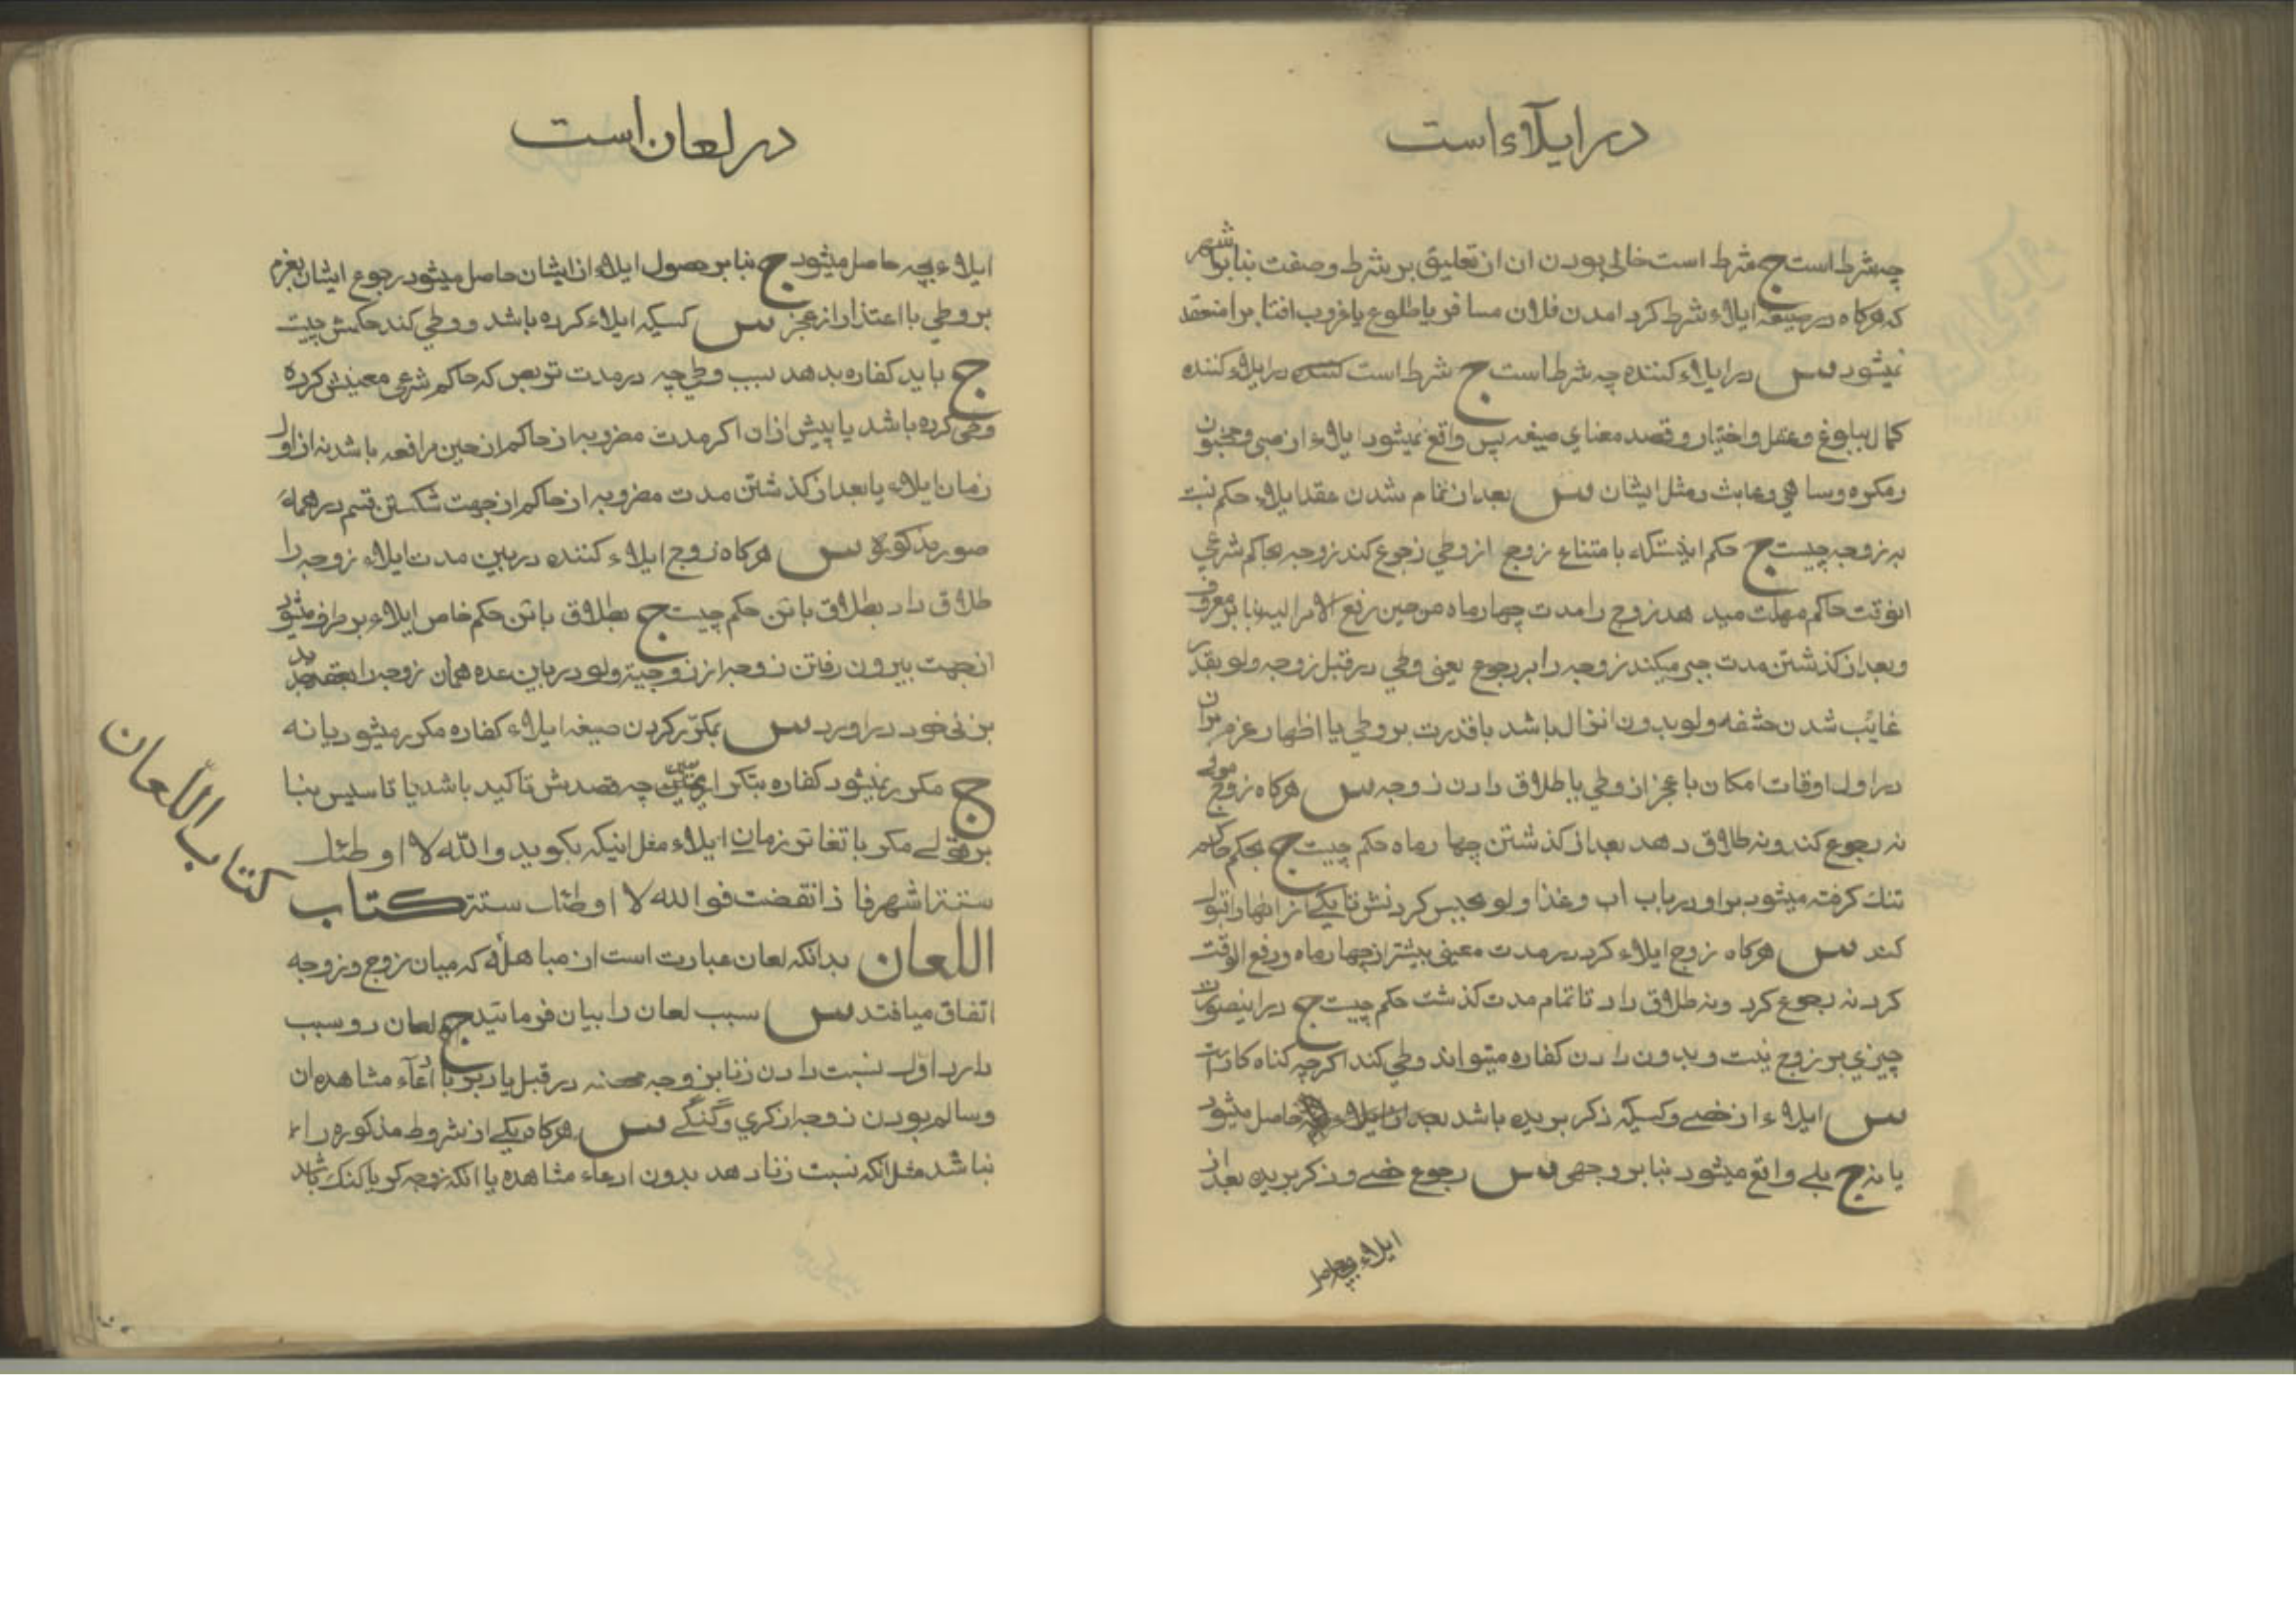 در ایلآء است
چه شرط است ج شرط است خالی بودن ان از تعلیق بر شرط و صفت بنا بر اشهر
که هرکاه در صیغه ایلاء شرط کرد امدن فلان مسافر یا طلوع یا غروب افتاب را منعقد
نمیشود س در ایلاء کننده چه شرط است ج شرط است در ایلاء کننده
کمال ببلوغ و عقل و اختیار و قصد معنای صیغه پس واقع نمیشود ایلاء از صبی و مجنون
و مکره و ساهی و عابث و مثل ایشان س بعد از تمام شدن عقد ایلاء حکم نسبت
به زوجه چیست ج حکم اینستکه با متناع زوج از وطی رجوع کند زوجه بحاکم شرعی
انوقت حاکم مهلت میدهد زوج را مدت چهار ماه من حین رفع الامر الیه بنا بر معروف
و بعد از کذشتن مدت جبر میکند زوجه را بر رجوع یعنی وطی در قبل زوجه ولو بقدر
غایب شدن حشفه ولو بدون انزال باشد با قدرت بر وطی یا اظهار عزم بران
در اول اوقات امکان با عجز از وطی یا طلاق دادن زوجه س هرکاه زوج مولی
نه رجوع کند و نه طلاق دهد بعد از کذشتن چهار ماه حکم چیست ج بحکم حاکم
تنك کرفته میشود بر او در باب اب و غذا ولو بحبس کردنش تا یکی از انها را قبول
کند س هرکاه زوج ایلاء کرد در مدت معینی بیشتر از چهار ماه و دفع الوقت
کرد نه رجوع کرد و نه طلاق داد تا تمام مدت کذشت حکم چیست ج در اینصورت
چیزی بر زوج نیست و بدون دادن کفاره میتواند وطی کند اکرچه کناه کار است
س ایلاء از خصی و کسیکه ذکر بریده باشد حاصل میشود
یا نه ج بلی واقع میشود بنا بر وجهی س رجوع خصی و ذکر بریده بعد از
ایلاء بچه حاصل
در لعان است
ایلاء بچه حاصل میشود ج بنا بر حصول ایلاء از ایشان حاصل میشود رجوع ایشان بعزم
بر وطی با اعتذار از عجز س کسیکه ایلاء کرده باشد و وطی کند حکمش چیست
ج باید کفاره بدهد بسبب وطی چه در مدت تربص که حاکم شرعی معینش کرده
وطی کرده باشد یا پیش از ان اکر مدت مضروبه از حاکم از حین مرافعه باشد نه از اول
زمان ایلاء یا بعد از کذشتن مدت مضروبه از حاکم از جهت شکستن قسم در همه
صور مذکوره س هرکاه زوج ایلاء کننده در بین مدت ایلاء زوجه را
طلاق داد بطلاق بائن حکم چیست ج بطلاق بائن حکم خاص ایلاء بر طرف میشود
از جهت بیرون رفتن زوجه از زوجیة ولو در مابین عده همان زوجه را بعقد جدید
بزنی خود در اورد س بمکرّر کردن صیغه ایلاء کفاره مکرر میشود یا نه
ج مکرر نمیشود کفاره بتکرار یمین چه قصدش تاکید باشد یا تاسیس بنا
بر قولی مکر با تغایر زمان ایلاء مثل اینکه بکوید والله لا اوطئك
ستة اشهر فاذا انقضت فوالله لا اوطئك ستة کتاب
اللّعان بدانکه لعان عبارت است از مباهلهٔ که میان زوج و زوجه
اتفاق میافتد س سبب لعان را بیان فرمائید ج لعان دو سبب
دارد اول نسبت دادن زنا بزوجه محصنه در قبل یا دبر با ادّعآء مشاهده ان
و سالم بودن زوجه از کری و کنکی س هرکاه یکی از شروط مذکوره را
نباشد مثل انکه نسبت زنا دهد بدون ادعاء مشاهده یا انکه زوجه کر یا کنك باشد
کتاب اللّعان